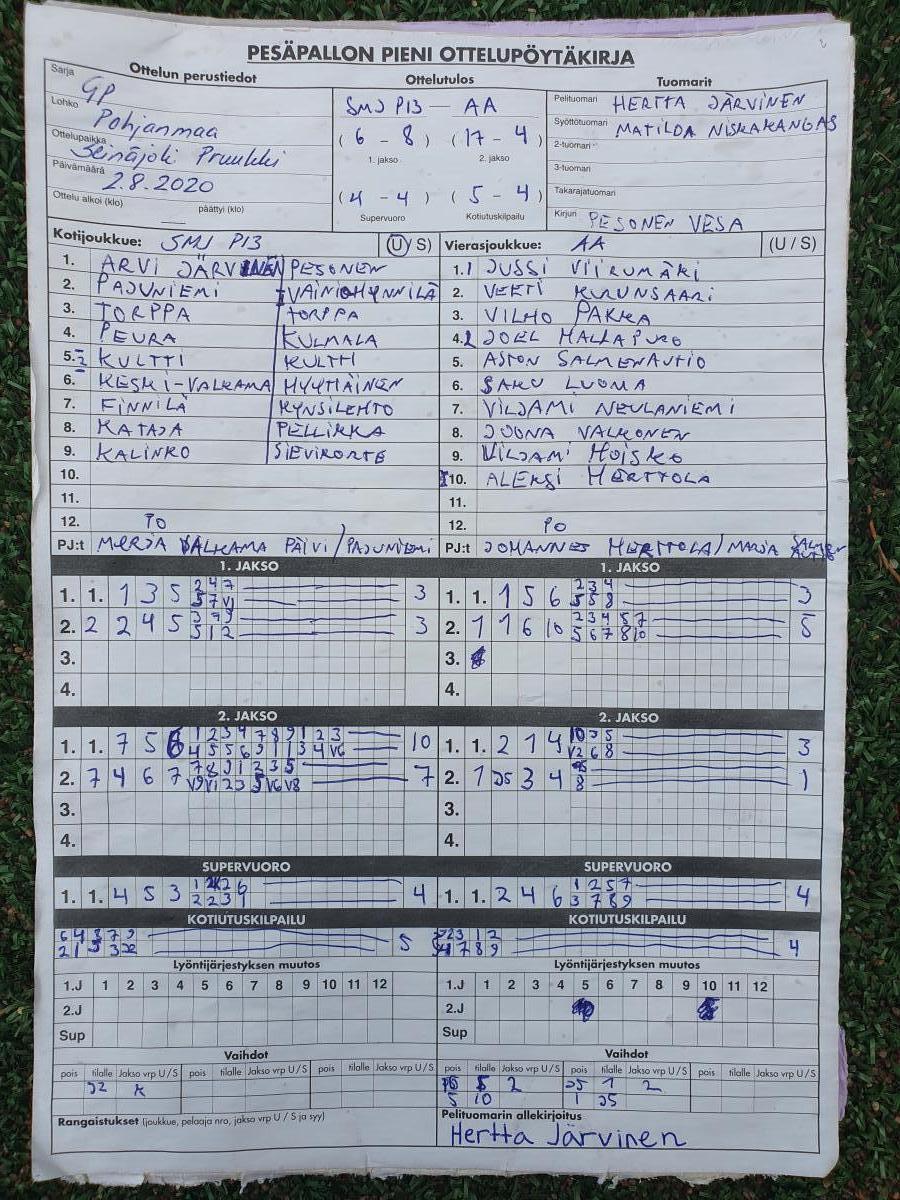 PESÄPALLON PIENI OTTELUPÖYTÄKIRJA
Ottelun perustiedot
Sarja GP
Lohko Pohjanmaa
Ottelupaikka Seinäjoki Pruukki
Päivämäärä 2.8.2020
Ottelu alkoi (klo) päättyi (klo)
Ottelutulos
SMJ P13 - AA
(6 - 8) (17 - 4)
1. jakso 2. jakso
(4 - 4) (5 - 4)
Supervuoro Kotiutuskilpailu
Tuomarit
Pelituomari HERTTA JÄRVINEN
Syöttötuomari MATILDA NISKAKANGAS
2-tuomari
3-tuomari
Takarajatuomari
Kirjuri PESONEN VESA
Kotijoukkue: SMJ P13 (U/S)
1. ARVI JÄRVINEN PESONEN
2. PAJUNIEMI VAINIONPÄÄ
3. TORPPA TORPPA
4. PEURA KULMALA
5. KULTTI KULTTI
6. KESKI-VALKAMA HYYTIÄINEN
7. FINNILÄ KYNSILEHTO
8. KATAJA PELLIKKA
9. KALINKO
10.
11.
12. PO
PJ:t MERJA VALKAMA PÄIVI / PAJUNIEMI
Vierasjoukkue: AA (U / S)
1. JUSSI VIIRUMÄKI
2. VEETI KURUNSAARI
3. VILHO PAKKA
4. JOEL HALLAPURO
5. ASTON SALMENAUTIO
6. SAKU LUOMA
7. VILJAMI NEULANIEMI
8. JOONA VALKONEN
9. VILJAMI HOISKO
10. ALEKSI HERTTOLA
11.
12. PO
PJ:t JOHANNES HERTTOLA / MARJA
1. JAKSO
1. 1. 1 3 5 3
2. 2 2 4 5 3
3.
4.
1. JAKSO
1. 1. 1 5 6 2 3 4 5 5 8 3
2. 1 1 6 10 2 3 4 5 7 5 6 7 8 10 5
3.
4.
2. JAKSO
1. 1. 7 5 6 10
2. 7 4 6 7 7
3.
4.
2. JAKSO
1. 1. 2 1 4 3
2. 1 3 4 8 1
3.
4.
SUPERVUORO
1. 1. 4 5 3 4
SUPERVUORO
1. 1. 2 4 6 1 2 5 7 3 7 8 9 4
KOTIUTUSKILPAILU
5
KOTIUTUSKILPAILU
4
Lyöntijärjestyksen muutos
1.J 1 2 3 4 5 6 7 8 9 10 11 12
2.J
Sup
Lyöntijärjestyksen muutos
1.J 1 2 3 4 5 6 7 8 9 10 11 12
2.J
Sup
Vaihdot
pois tilalle Jakso vrp U / S pois tilalle Jakso vrp U / S pois tilalle
Vaihdot
pois tilalle Jakso vrp U / S pois tilalle Jakso vrp U / S pois tilalle Jakso vrp U / S
5 10
Rangaistukset (joukkue, pelaaja nro, jakso vrp U / S ja syy)
Pelituomarin allekirjoitus
Hertta Järvinen